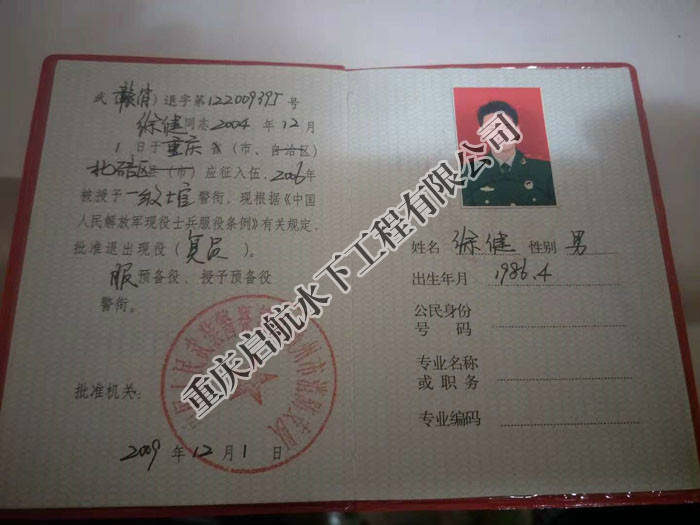 武(赣消)退字第122009395号
徐健同志2004年12月
1日于重庆省(市、自治区)
北碚区县(市)应征入伍,2006年
被授予一级士官警衔,现根据《中国
人民解放军现役士兵服役条例》有关规定,
批准退出现役(复员)
服预备役、授予预备役
警衔。
批准机关:
2009年12月1日
姓名 徐健 性别 男
出生年月 1986.4
公民身份
号码
专业名称
或职务
专业编码
重庆启航水下工程有限公司